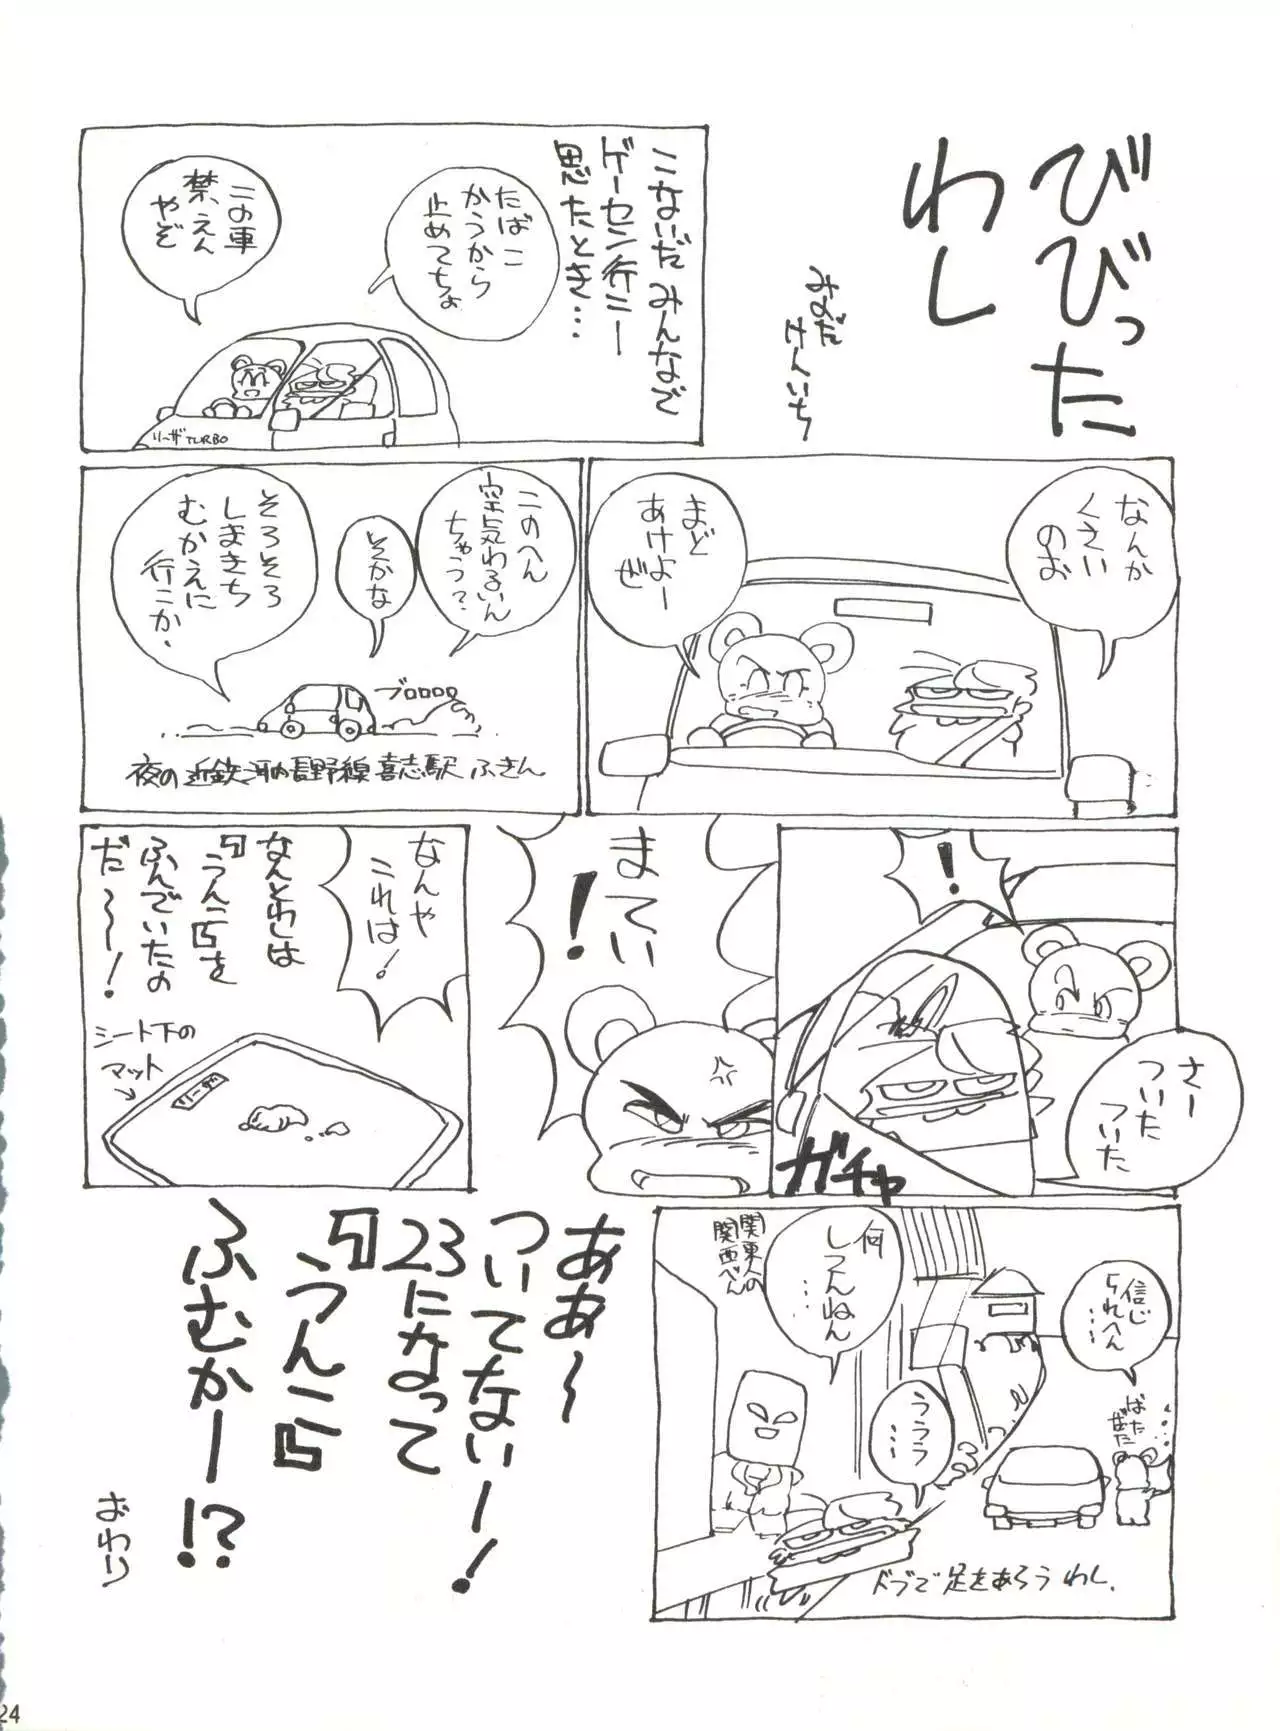 びびった
わし
みのだ
けんいち
こないだ みんなで
ゲーセン行こー
思たとき…
たばこ
かうから
止めてちょ
この車
禁えん
やぞ
リーザTURBO
なんか
くさい
のお
まど
あけよー
ぜ
このへん
空気わるいん
ちゃう？
そかな
そろそろ
しまきち
むかえに
行こか．
ブロロロロ
夜の近鉄河内長野線喜志駅ふきん
！
さー
ついた
ついた
ガチャ
まてい
！
なんや
これは！
なんとわしは
『うんこ』を
ふんでいたの
だ～～！
シート下の
マット
リーザ
信じ
られへん
……
ばた
ばた
何
してんねん
……
関東人の
関西べん
ううう
……
ドブで足をあろうわし．
ああ～
ついてないー！
23になって
『うんこ』
ふむかー!?
おわり
24